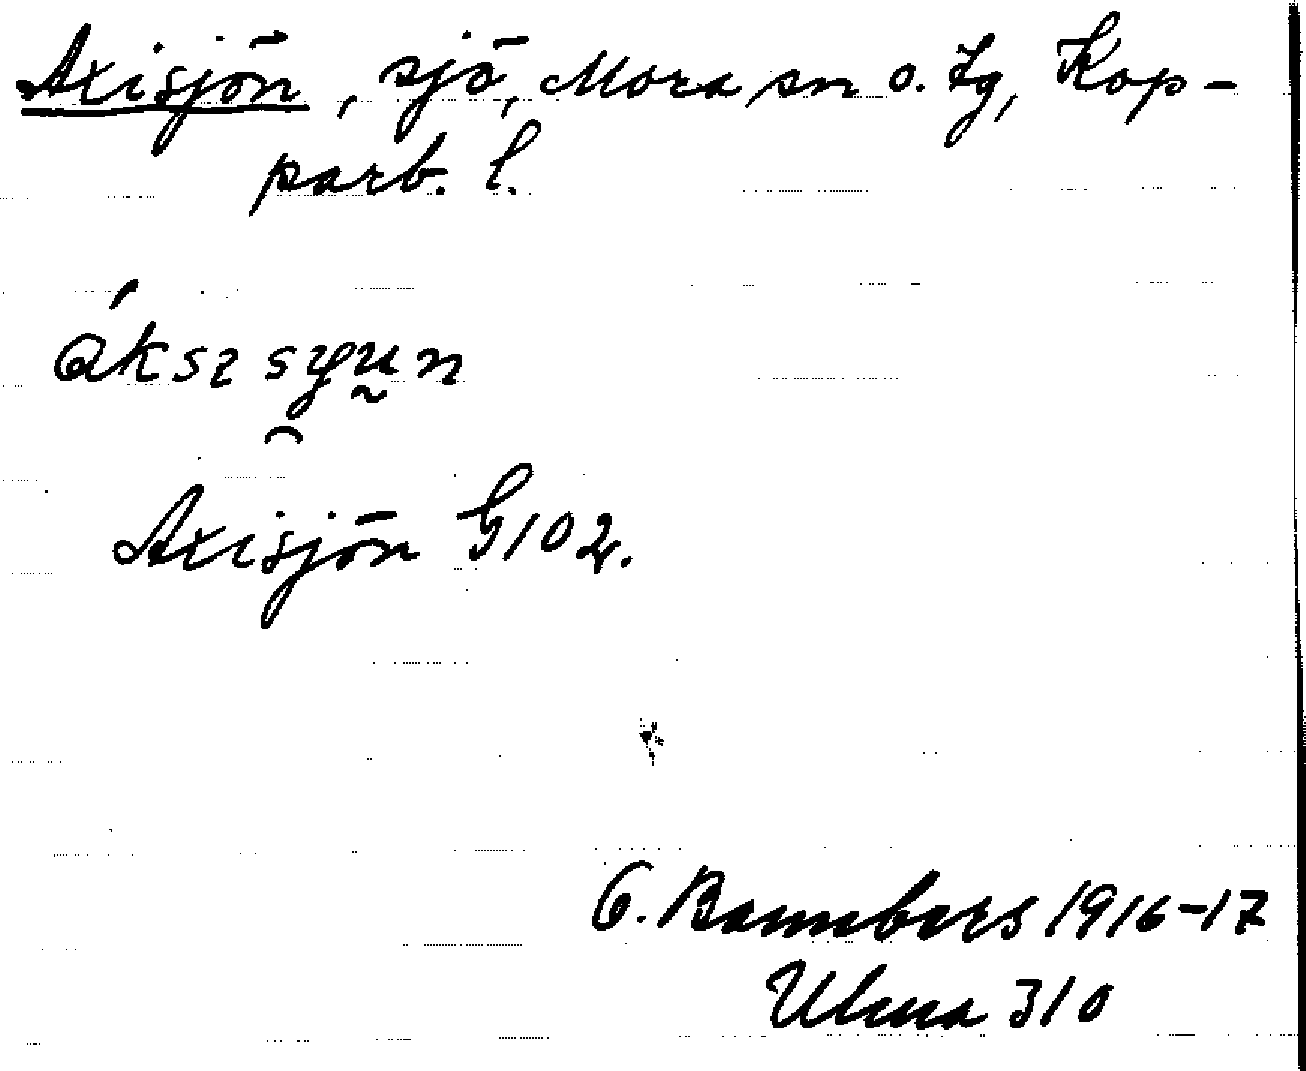 Axisjön, sjö, Mora sn o. tg, Kop-
parb. l.
áksɩ syu̯n
Axisjön G102.
G. Bannbers 1916-17
Ulma 310